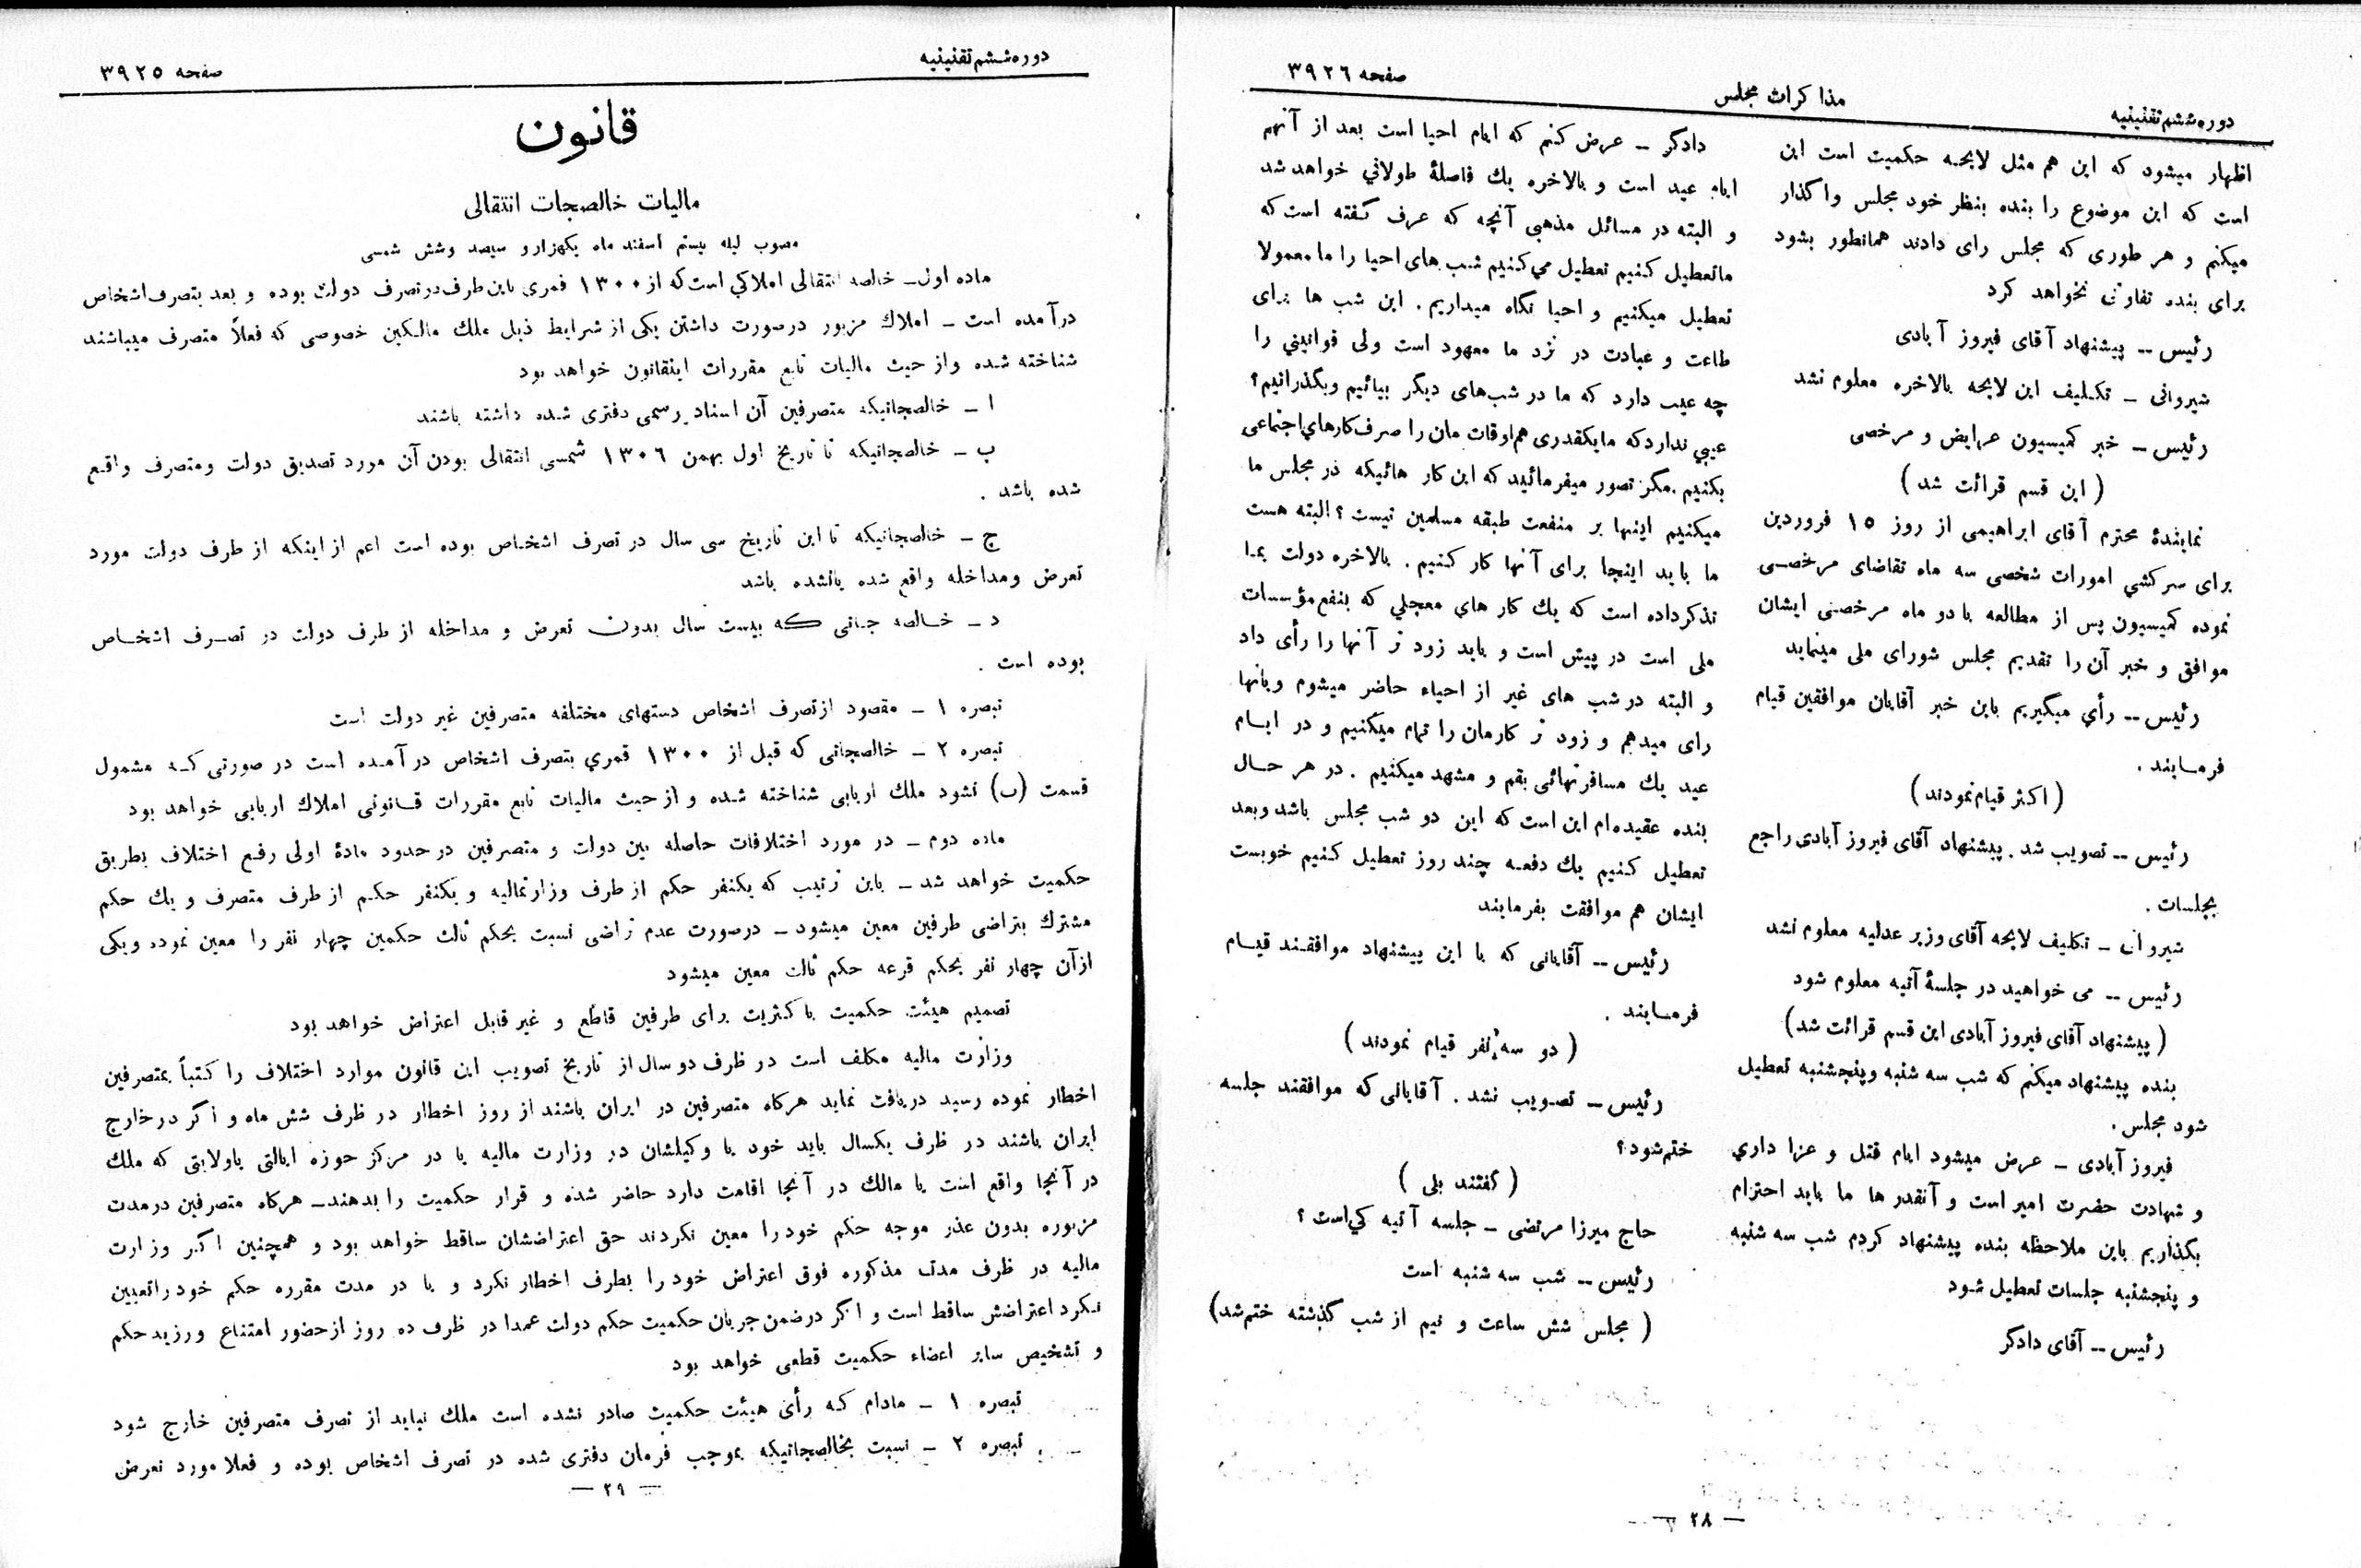 صفحه ٣٩٢٦
مذاکرات مجلس
دوره ششم تقنینیه
اظهار میشود که این هم مثل لایحه حکمیت است این
است که این موضوع را بنده بنظر خود مجلس واگذار
میکنم و هر طوری که مجلس رای دادند همانطور بشود
برای بنده تفاوتی نخواهد کرد
رئیس -- پیشنهاد آقای فیروز آبادی
شیروانی ـ تکلیف این لایحه بالاخره معلوم نشد
رئیس ـ خبر کمیسیون عرایض و مرخصی
(این قسم قرائت شد)
نمایندهٔ محترم آقای ابراهیمی از روز ١٥ فروردین
برای سرکشی امورات شخصی سه ماه تقاضای مرخصی
نموده کمیسیون پس از مطالعه با دو ماه مرخصی ایشان
موافق و خبر آن را تقدیم مجلس شورای ملی مینماید
رئیس -- رأی میگیریم باین خبر آقایان موافقین قیام
فرمایند .
(اکثر قیام نمودند)
رئیس -- تصویب شد . پیشنهاد آقای فیروز آبادی راجع
بجلسات .
شیروانی ـ تکلیف لایحه آقای وزیر عدلیه معلوم نشد
رئیس -- می خواهید در جلسهٔ آتیه معلوم شود
(پیشنهاد آقای فیروز آبادی این قسم قرائت شد)
بنده پیشنهاد میکنم که شب سه شنبه و پنجشنبه تعطیل
شود مجلس .
فیروز آبادی ـ عرض میشود ایام قتل و عزا داری
و شهادت حضرت امیر است و آنقدر ها ما باید احترام
بگذاریم باین ملاحظه بنده پیشنهاد کردم شب سه شنبه
و پنجشنبه جلسات تعطیل شود
رئیس -- آقای دادگر
دادگر ـ عرض کنم که ایام احیا است بعد از آنهم
ایام عید است و بالاخره یك فاصلهٔ طولانی خواهد شد
و البته در مسائل مذهبی آنچه که عرف گفته است که
ما تعطیل کنیم تعطیل می کنیم شب های احیا را ما معمولا
تعطیل میکنیم و احیا نگاه میداریم . این شب ها برای
طاعت و عبادت در نزد ما معهود است ولی قوانینی را
چه عیب دارد که ما در شب‌های دیگر بیائیم و بگذرانیم؟
عیبی ندارد که ما یکقدری هم اوقات مان را صرف کارهای اجتماعی
بکنیم . مگر تصور میفرمائید که این کار هائیکه در مجلس ما
میکنیم اینها بر منفعت طبقه مسلمین نیست ؟ البته هست
ما باید اینجا برای آنها کار کنیم . بالاخره دولت بما
تذکر داده است که یك کار های معجلی که بنفع مؤسسات
ملی است در پیش است و باید زود تر آنها را رأی داد
و البته در شب های غیر از احیاء حاضر میشوم و بآنها
رای میدهم و زود تر کارمان را تمام میکنیم و در ایام
عید یك مسافرتهائی بقم و مشهد میکنیم . در هر حال
بنده عقیده‌ام این است که این دو شب مجلس باشد و بعد
تعطیل کنیم یك دفعه چند روز تعطیل کنیم خوبست
ایشان هم موافقت بفرمایند
رئیس -- آقایانی که با این پیشنهاد موافقند قیام
فرمایند .
(دو سه نفر قیام نمودند)
رئیس ـ تصویب نشد . آقایانی که موافقند جلسه
ختم شود؟
(گفتند بلی)
حاج میرزا مرتضی ـ جلسه آتیه کی است ؟
رئیس -- شب سه شنبه است
(مجلس شش ساعت و نیم از شب گذشته ختم شد)
— ٢٨ —
دوره ششم تقنینیه
صفحه ٣٩٢٥
قانون
مالیات خالصجات انتقالی
مصوب لیله بیستم اسفند ماه یکهزار و سیصد و شش شمسی
ماده اول ـ خالصه انتقالی املاکی است که از ١٣٠٠ قمری باین طرف در تصرف دولت بوده و بعد بتصرف اشخاص
درآمده است ـ املاك مزبور در صورت داشتن یکی از شرایط ذیل ملك مالکین خصوصی که فعلاً متصرف میباشند
شناخته شده و از حیث مالیات تابع مقررات اینقانون خواهد بود
ا ـ خالصجاتیکه متصرفین آن اسناد رسمی دفتری شده داشته باشند
ب ـ خالصجاتیکه تا تاریخ اول بهمن ١٣٠٦ شمسی انتقالی بودن آن مورد تصدیق دولت و متصرف واقع
شده باشد .
ج ـ خالصجاتیکه تا این تاریخ سی سال در تصرف اشخاص بوده است اعم از اینکه از طرف دولت مورد
تعرض و مداخله واقع شده یا نشده باشد
د ـ خالصه جاتی که بیست سال بدون تعرض و مداخله از طرف دولت در تصرف اشخاص
بوده است .
تبصره ١ ـ مقصود از تصرف اشخاص دستهای مختلفه متصرفین غیر دولت است
تبصره ٢ ـ خالصجاتی که قبل از ١٣٠٠ قمری بتصرف اشخاص در آمده است در صورتی که مشمول
قسمت (ب) نشود ملك اربابی شناخته شده و از حیث مالیات تابع مقررات قانونی املاك اربابی خواهد بود
ماده دوم ـ در مورد اختلافات حاصله بین دولت و متصرفین در حدود مادهٔ اولی رفع اختلاف بطریق
حکمیت خواهد شد ـ باین ترتیب که یکنفر حکم از طرف وزارتمالیه و یکنفر حکم از طرف متصرف و یك حکم
مشترك بتراضی طرفین معین میشود ـ در صورت عدم تراضی نسبت بحکم ثالث حکمین چهار نفر را معین نموده و یکی
از آن چهار نفر بحکم قرعه حکم ثالث معین میشود
تصمیم هیئت حکمیت با کثریت برای طرفین قاطع و غیر قابل اعتراض خواهد بود
وزارت مالیه مکلف است در ظرف دو سال از تاریخ تصویب این قانون موارد اختلاف را کتباً بمتصرفین
اخطار نموده رسید دریافت نماید هرگاه متصرفین در ایران باشند از روز اخطار در ظرف شش ماه و اگر در خارج
ایران باشند در ظرف یکسال باید خود یا وکیلشان در وزارت مالیه یا در مرکز حوزه ایالتی یا ولایتی که ملك
در آنجا واقع است یا مالك در آنجا اقامت دارد حاضر شده و قرار حکمیت را بدهند ـ هرگاه متصرفین در مدت
مزبوره بدون عذر موجه حکم خود را معین نکردند حق اعتراضشان ساقط خواهد بود و همچنین اگر وزارت
مالیه در ظرف مدت مذکوره فوق اعتراض خود را بطرف اخطار نکرد و یا در مدت مقرره حکم خود را تعیین
نکرد اعتراضش ساقط است و اگر در ضمن جریان حکمیت حکم دولت عمدا در ظرف ده روز از حضور امتناع ورزید حکم
و تشخیص سایر اعضاء حکمیت قطعی خواهد بود
تبصره ١ ـ مادام که رأی هیئت حکمیت صادر نشده است ملك نباید از تصرف متصرفین خارج شود
تبصره ٢ ـ نسبت بخالصجاتیکه بموجب فرمان دفتری شده در تصرف اشخاص بوده و فعلا مورد تعرض
— ٢٩ —